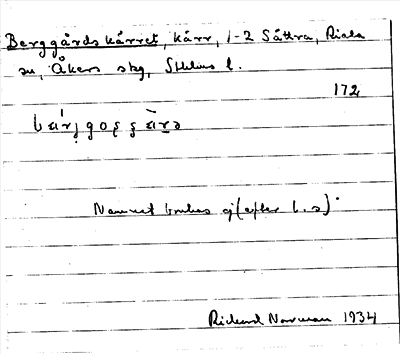 Berggårdskärret, kärr, 1-2 Sättra, Riala
sn, Åkers skg, Sthlms l.
172
Namnet brukas ej (efter l. s)
Rickard Norman 1934